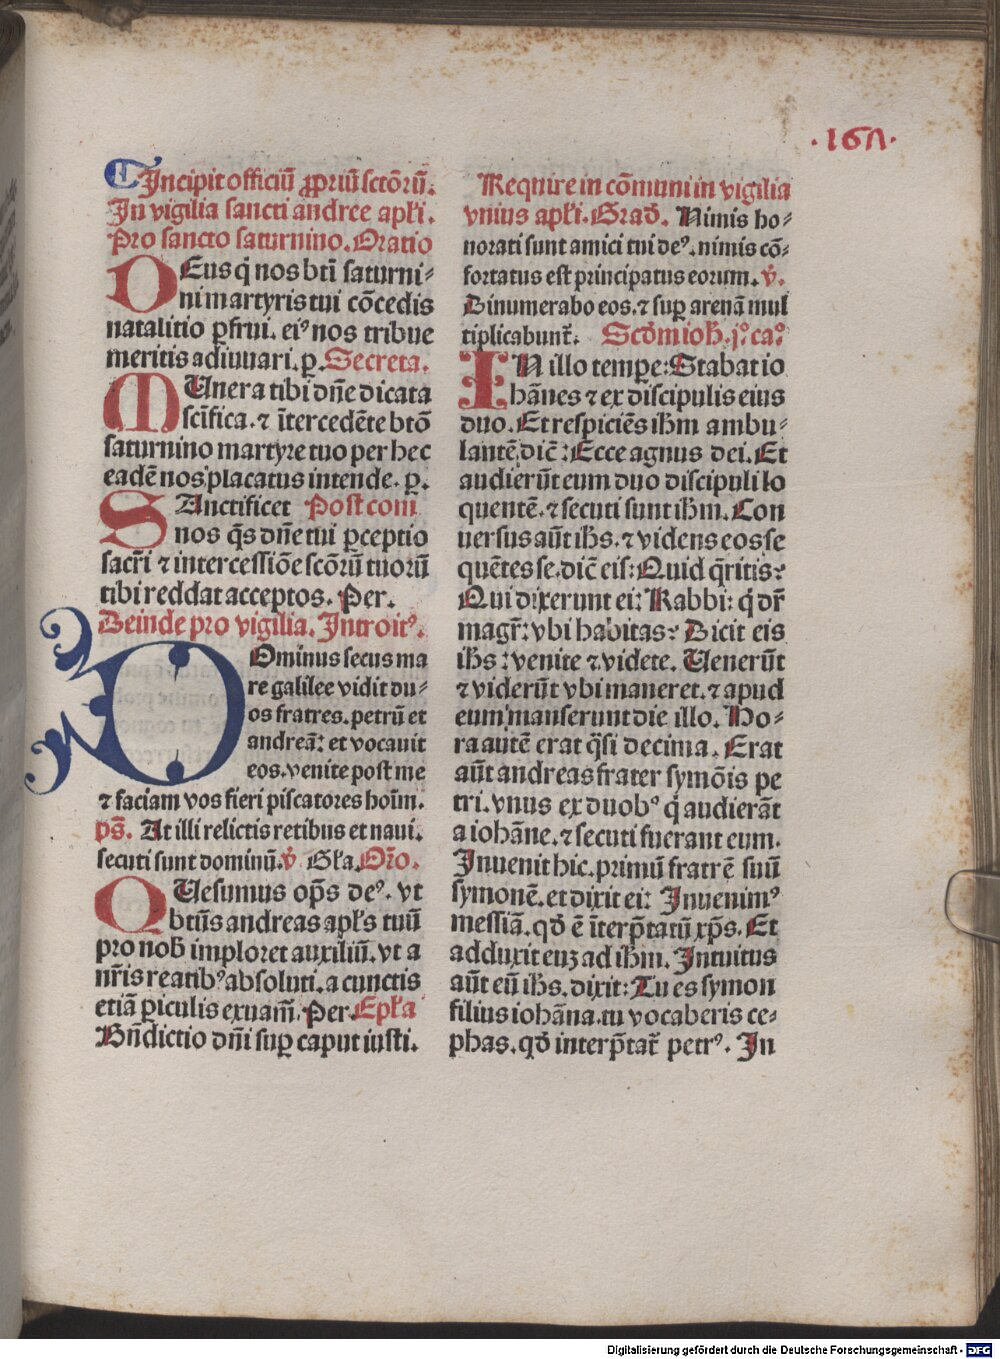 ·167·
Incipit officiũ ꝓpriũ sctõrũ.
In vigilia sancti andree apłi.
Pro sancto saturnino. Oratio
DEus q̃ nos btĩ saturni⸗
ni martyris tui cõcedis
natalitio ꝑfrui. ei⁹ nos tribue
meritis adiuuari. ꝑ. Secreta.
MUnera tibi dñe dicata
scĩfica. ⁊ ĩtercedẽte btõ
saturnino martyre tuo per hec
eadẽ nos placatus intende. ꝑ.
SAnctificet Post com
nos q̃s dñe tui ꝑceptio
sacr̃i ⁊ intercessiõe scõrũ tuorũ
tibi reddat acceptos. Per.
Deinde pro vigilia. Introit⁹.
DOminus secus ma
re galilee vidit du⸗
os fratres. petrũ et
andreã: et vocauit
eos. venite post me
⁊ faciam vos fieri piscatores hoĩm.
ps̃. At illi relictis retibus et naui.
secuti sunt dominũ. ṽ Gła. Orõ.
QUesumus op̃s de⁹. vt
btũs andreas apłs tuũ
pro nob̃ imploret auxiliũ. vt a
nr̃is reatib⁹ absoluti. a cunctis
etiã ꝑiculis exuam̃. Per. Epła
Bñdictio dñi suꝑ caput iusti.
Require in cõmuni in vigilia
vnius apłi. Grad̃. Nimis ho⸗
norati sunt amici tui de⁹. nimis cõ⸗
fortatus est principatus eorum. ṽ.
Dinumerabo eos. ⁊ suꝑ arenã mul
tiplicabunt̃. Scd̃m ioh̃. j⁰. ca⁰
IN illo tempe: Stabat io
hãnes ⁊ ex discipulis eius
duo. Et respiciẽs ih̃m ambu⸗
lantẽ. dic̃: Ecce agnus dei. Et
audierũt eum duo discipuli lo
quentẽ. ⁊ secuti sunt ih̃m. Con
uersus aũt ih̃s. ⁊ videns eos se
quẽtes se. dic̃ eis: Quid q̃ritis?
Qui dixerunt ei: Rabbi: q̃ dr̃
magr̃: vbi habitas? Dicit eis
ih̃s: venite ⁊ videte. Uenerũt
⁊ viderũt vbi maneret. ⁊ apud
eum manserunt die illo. Ho⸗
ra autẽ erat q̃si decima. Erat
aũt andreas frater symõis pe
tri. vnus ex duob⁹ q̃ audierãt
a iohãne. ⁊ secuti fuerant eum.
Inuenit hic. primũ fratrẽ suũ
symonẽ. et dixit ei: Inuenim⁹
messiã. qd̃ ẽ ĩterp̃tatũ xp̃s. Et
adduxit euꝫ ad ih̃m. Intuitus
aũt eũ ih̃s. dixit: Tu es symon
filius iohãna. tu vocaberis ce⸗
phas. qd̃ interp̃tat̃ petr⁹. In
Digitalisierung gefördert durch die Deutsche Forschungsgemeinschaft - DFG